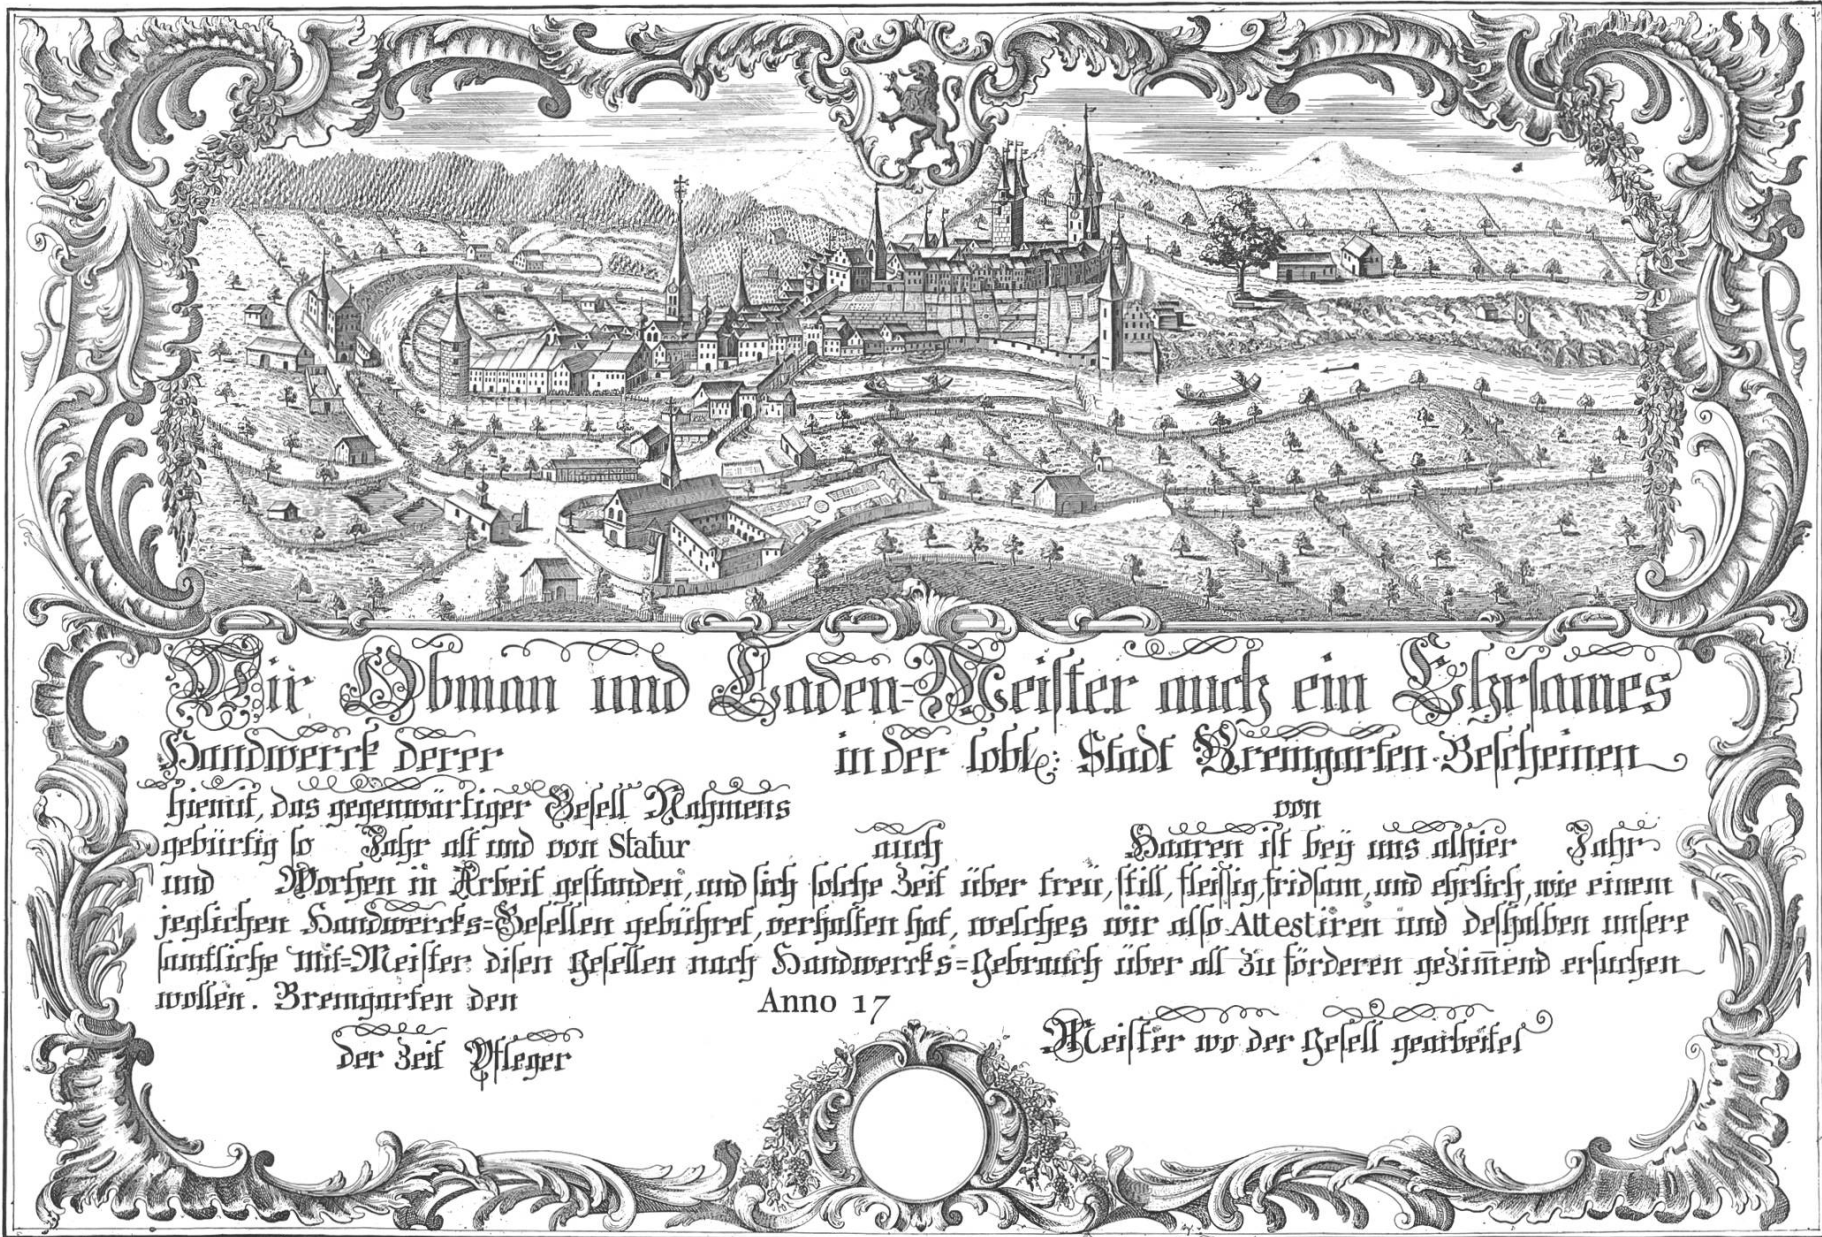 Wir Obman und Laden=Meister auch ein Ehrsames
Handwerck derer in der lobl: Stadt Bremgarten Bescheinen
hiemit, das gegenwärtiger Gesell Nahmens von
gebürtig so Jahr alt und von Statur auch Haaren ist bey uns alhier Jahr
und Wochen in Arbeit gestanden, und sich solche Zeit über treü, still, fleissig, fridsam, und ehrlich, wie einem
jeglichen Handwercks=Gesellen gebühret, verhalten hat, welches wir also Attestiren und deshalben unsere
samtliche Mit=Meister disen gesellen nach Handwercks=gebrauch über all zu förderen gezim̅end ersuchen
wollen. Bremgarten den Anno 17
der Zeit Pfleger
Meister wo der gesell gearbeitet